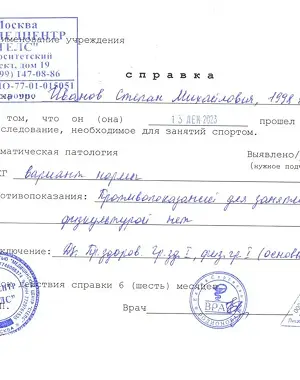 Москва
МЕДЦЕНТР
"ГЕЛС"
ситетский
ект, дом 19
99) 147-08-86
ЛО-77-01-015051
именование учреждения
справка
Иванов Степан Михайлович, 1998
том, что он (она) 15 ДЕК 2023 прошел
следование, необходимое для занятий спортом.
матическая патология Выявлено/
(нужное под
КГ вариант нормы
отивопоказания: Противопоказаний для заняти
физкультурой нет
ключение: Дз: Пр. здоров. Гр. зд. I, физ. гр. I (основ
действия справки 6 (шесть) месяцев
Врач
ВРАЧ